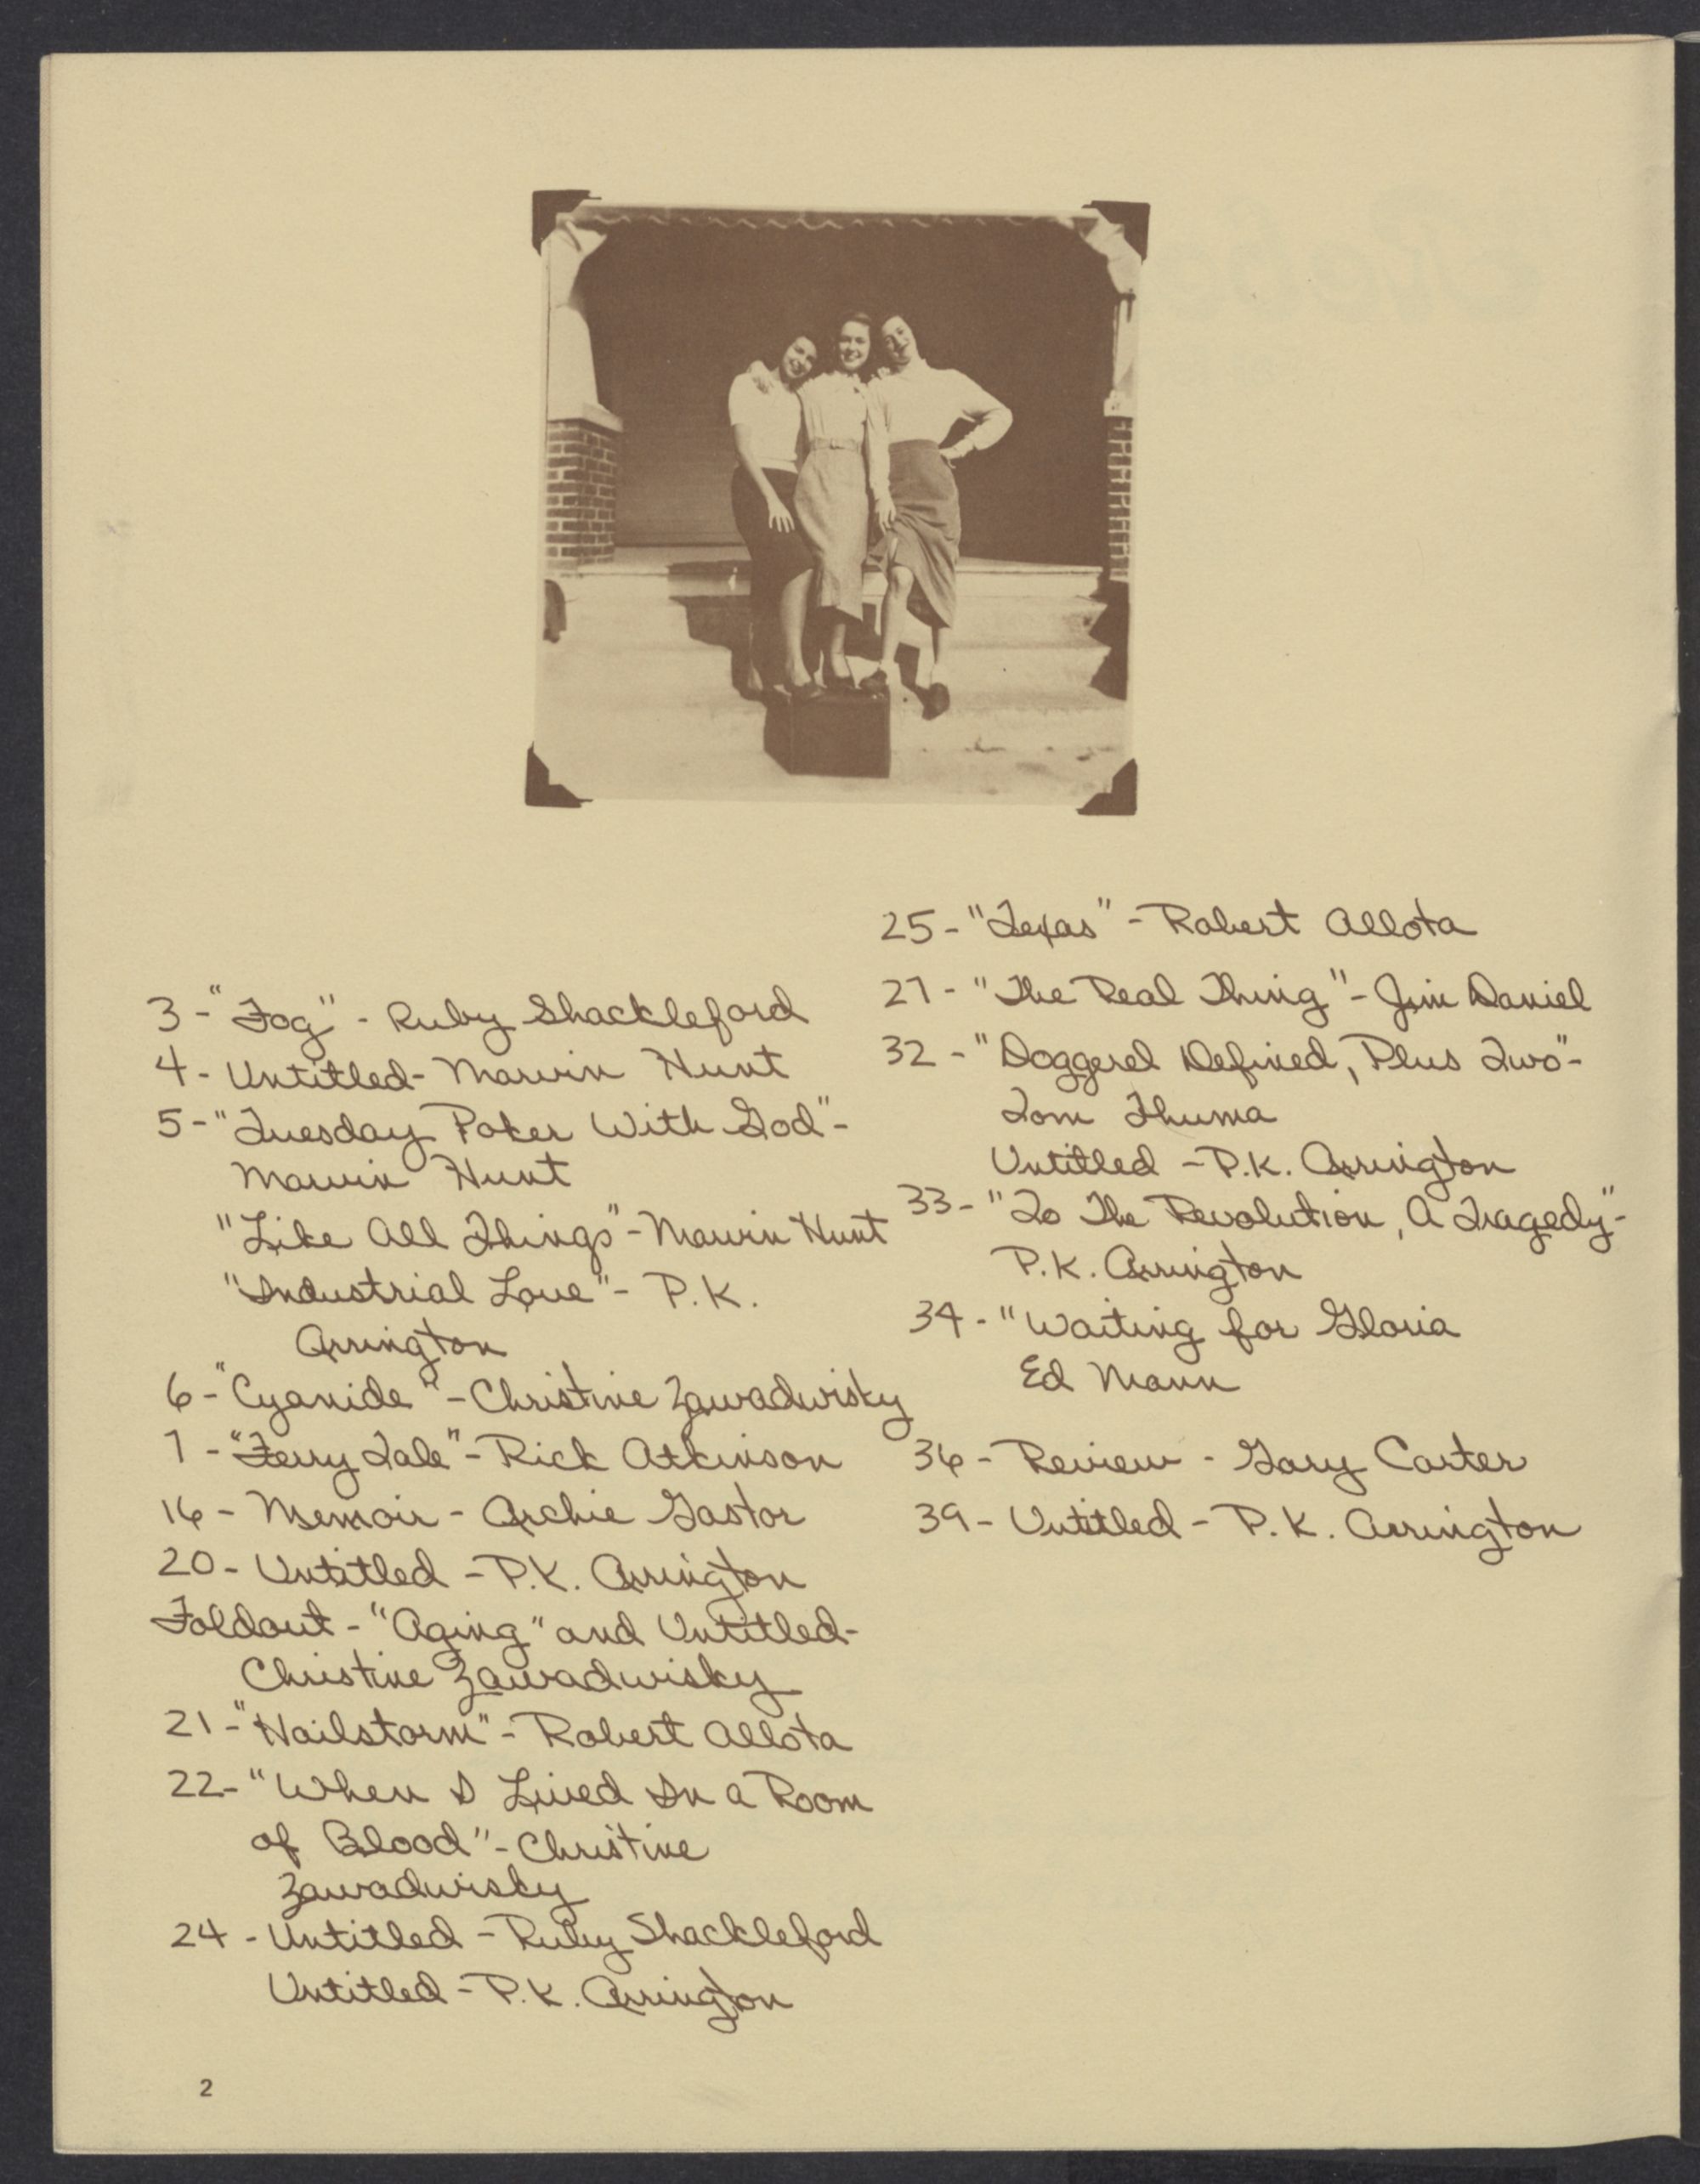 3 - "Fog" - Ruby Shackleford
4 - Untitled - Marvin Hunt
5 - "Tuesday Poker With God" -
Marvin Hunt
"Like All Things" - Marvin Hunt
"Industrial Love" - P.K.
Arrington
6 - "Cyanide" - Christine Zawadwisky
7 - "Ferry Tale" - Rick Atkinson
16 - Memoir - Archie Gastor
20 - Untitled - P.K. Arrington
Foldout - "Aging" and Untitled -
Christine Zawadwisky
21 - "Hailstorm" - Robert Allota
22 - "When I Lived In a Room
of Blood" - Christine
Zawadwisky
24 - Untitled - Ruby Shackleford
Untitled - P.K. Arrington
25 - "Texas" - Robert Allota
27 - "The Real Thing" - Jim Daniel
32 - "Doggerel Defined, Plus Two" -
Tom Thuma
Untitled - P.K. Arrington
33 - "To The Revolution, A Tragedy" -
P.K. Arrington
34 - "Waiting for Gloria
Ed Mann
36 - Review - Gary Carter
39 - Untitled - P.K. Arrington
2